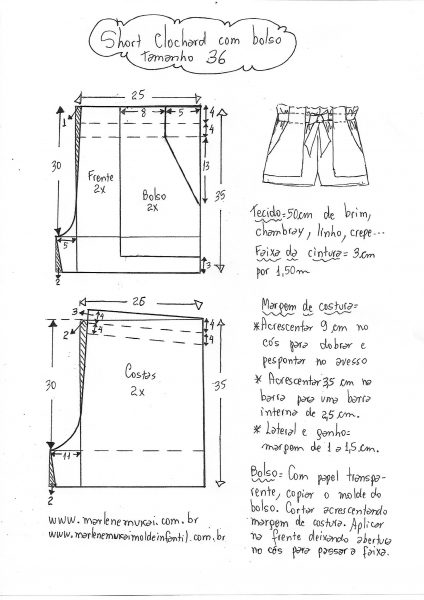 Short Clochard com bolso
tamanho 36
25
8
5
4
4
1
30
Frente
2x
Bolso
2x
13
35
5
3
2
Tecido=50cm de brim,
chambray, linho, crepe...
Faixa da cintura= 3cm
por 1,50m
26
3
4
4
4
4
2
30
Costas
2x
35
11
2
Margem de costura=
*Acrescentar 9 cm no
cós para dobrar e
pespontar no avesso
* Acrescentar 3,5 cm na
barra para uma barra
interna de 2,5 cm.
* Lateral e ganho=
margem de 1 a 1,5 cm.
Bolso= Com papel transpa-
rente, copiar o molde do
bolso. Cortar acrescentando
margem de costura. Aplicar
na frente deixando abertura
no cós para passar a faixa.
www.marlenemukai.com.br
www.marlenemukaimoldeinfantil.com.br